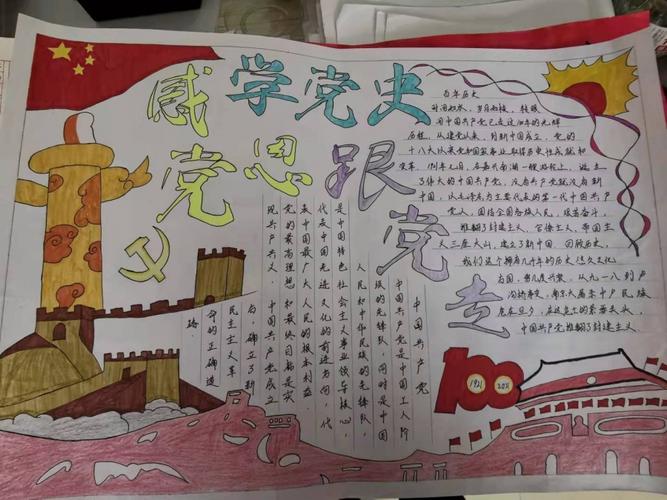 学党史
感党恩跟党走
百年历史
时间如水，岁月如梭，转眼
间中国共产党已走过100年的光辉
历程，从建党以来，到新中国成立，党的
十八大以来党和国家事业取得历史性成就和
变革，1921年七月，在嘉兴南湖一艘游船上，诞生
了伟大的中国共产党，没有共产党就没有新
中国，以毛泽东为主要代表的第一代中国共产
党人，团结全国各族人民，艰苦奋斗，
推翻了封建主义，官僚主义，帝国主
义三座大山，建立了新中国，回顾历史，
我们这个拥有几千年的历史悠久文化
古国，曾几度兴衰，从九一八到卢
沟桥事变，南京大屠杀中民族
危在旦夕，在这危亡的紧要关头，
中国共产党推翻了封建主义
中国共产党
中国共产党是中国工人阶
级的先锋队，同时是中国
人民和中华民族的先锋队，
是中国特色社会主义事业领导核心，
代表中国先进文化的前进方向，代
表中国最广大人民的根本利益，
党的最高理想和最终目标是实
现共产共义，中国共产党成立
后，确立了新
民主主义革
命的正确道
路．
1921
2021
100